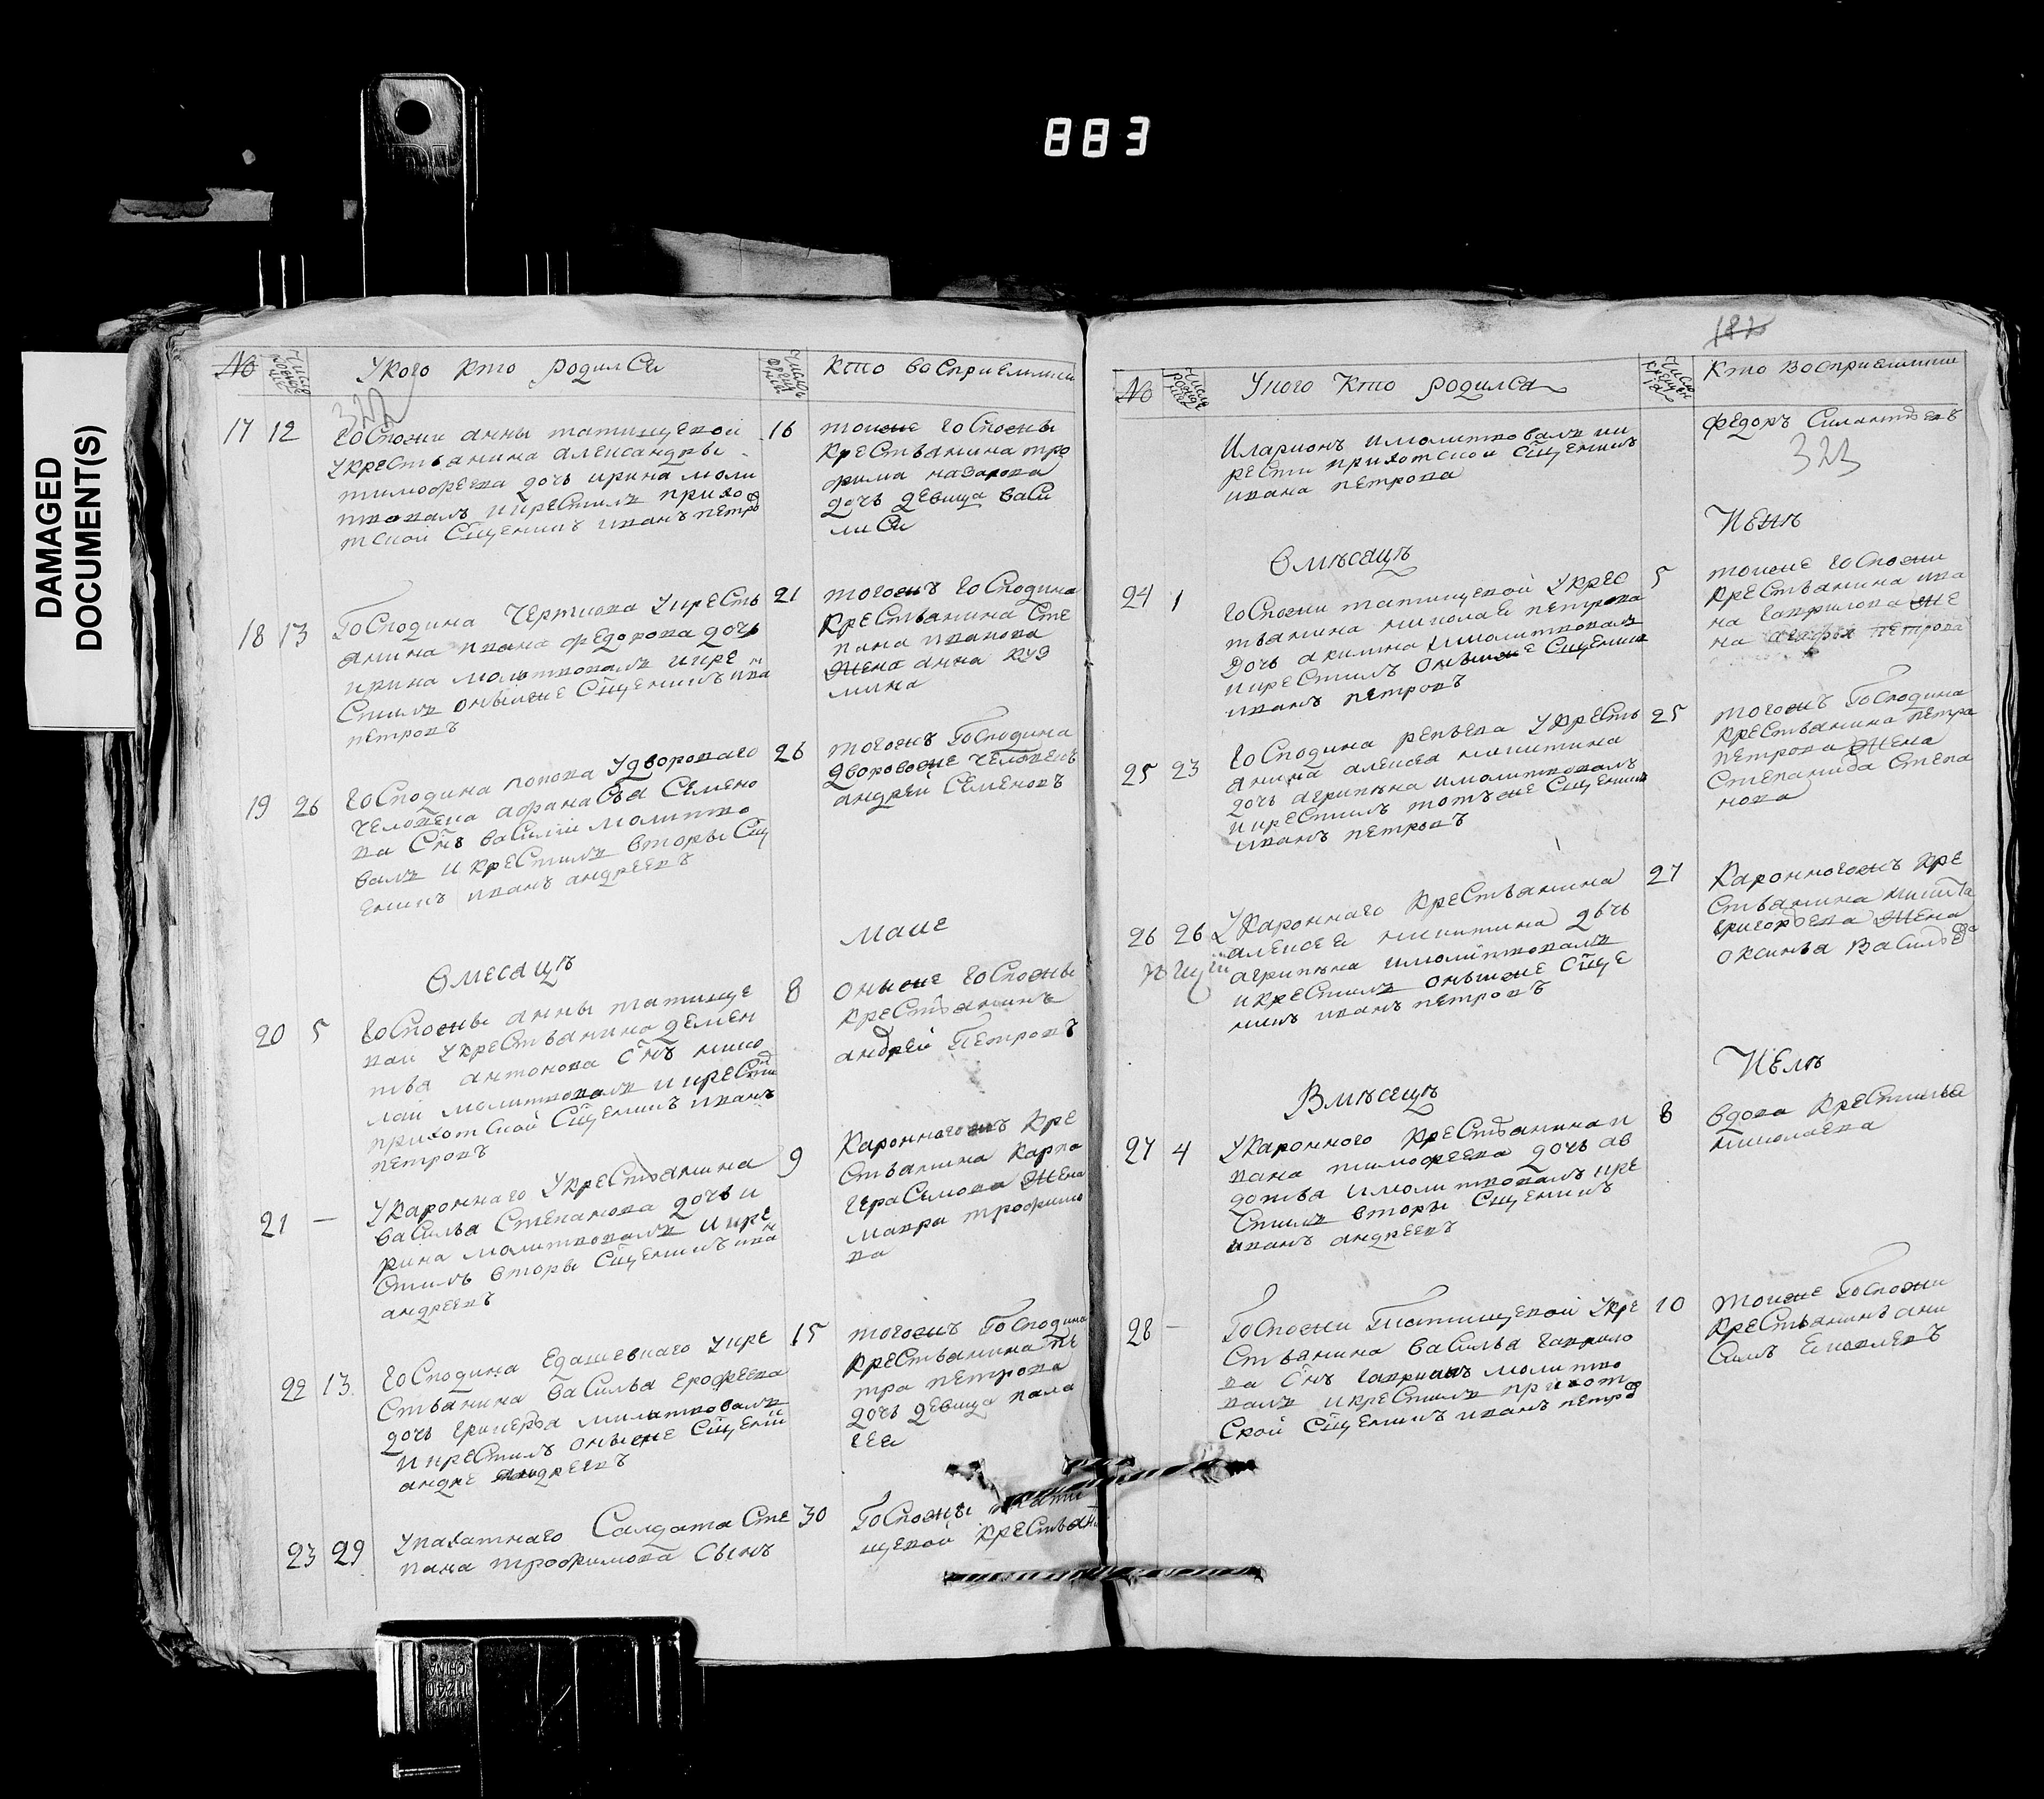 883
DAMAGED
DOCUMENT(S)
№
У кого кто родился
кто восприемники
322
17 12
Госпожи анны татищевой
у крестьянина александры
тимофеева дочь ирина моли
твовалъ и крестилъ приход
тской Сщенникъ иванъ петро
16
тоиже Госпожы
крестьянина тро
фима назарова
дочь девица васи
лиса
18 13
Господина Черткова у кресть
анина ивана федорова дочь
ирина молитвовалъ и кре
стилъ оныиже Сщенникъ ива
петровъ
21
тогожъ Господина
крестьянина Сте
пана иванова
жена анна куз
мина
19 26
Господина попова У двороваго
человека афанасья Семено
ва Снъ василий молитво
валъ и крестилъ вторы Сщ
енникъ иванъ андреевъ
26
тогожъ Господина
дворовоже человекъ
андрей Семеновъ
Ѳ месяцъ
маие
20 5
Госпожы анны татище
вай у крестьянина демен
тья антонова Снъ нико
лай молитвовалъ и крести
приходтской Сщенникъ иванъ
петровъ
8
оныже Госпожы
крестьянинъ
андрей Петровъ
21 —
У каронного Укрестьанина
василья Степанова дочь и
рина молитвовалъ и кре
стилъ вторы Сщенникъ ива
андреевъ
9
Каронногожъ кре
стьанина карпа
герасимова жена
мавра трофимо
ва
22 13
Господина Едашевкаго у кре
стьанина василья ерофеева
дочь гликерья молитвовалъ
и крестилъ оныиже Сщенни
андре андреевъ
15
тогожъ Господина
крестьанина пе
тра петрова
дочь девица пала
гея
23 29
У пахатнаго Салдата Сте
пана трофимова Сынъ
30
Госпожы тати
щевой крестьан
182
№
У кого Кто родился
Кто Восприемники
Иларионъ и молитвовалъ и к
рести приходтской Сщенникъ
ивана петрова
федоръ Силантьевъ
323
Ѳ мѣсяцъ
Июнѣ
24 1
Госпожи татищевой у крес
тьанина николае петрова
дочь акилина и молитвовалъ
и крестилъ оныиже Сщенникъ
иванъ петровъ
5
тоиже Госпожи
крестьанина ива
на гаврилова же
на петрова
25 23
Господина репьева У кресть
анина алексея никитина
дочь агрипѣна и молитвовалъ
и крестилъ тотъже Сщенникъ
иванъ петровъ
25
тогожъ Господина
крестьанина петра
петрова жена
Степанида Степа
нова
26 26
У каронного крестьанина
алексея никитина дочь
агрипѣна и молитвовалъ
и крестилъ оныиже Сще
никъ иванъ петровъ
27
Каронногожъ кре
стьанина никита
григорьева жена
оксинья Васильева
В мѣсяцъ
Июлѣ
27 4
У каронного крестьанина и
вана тимофеева дочь ав
дотья и молитвовалъ и кре
стилъ вторы Сщенникъ
иванъ андреевъ
8
вдова крестинья
николаева
28 —
Госпожи Татищевой У кре
стьанина василья гаврило
ва Снъ гаврилъ молитво
валъ и крестилъ приход
ской Сщенникъ иванъ петро
10
тоиже Госпожи
крестьанинъ ани
симъ Яковлевъ